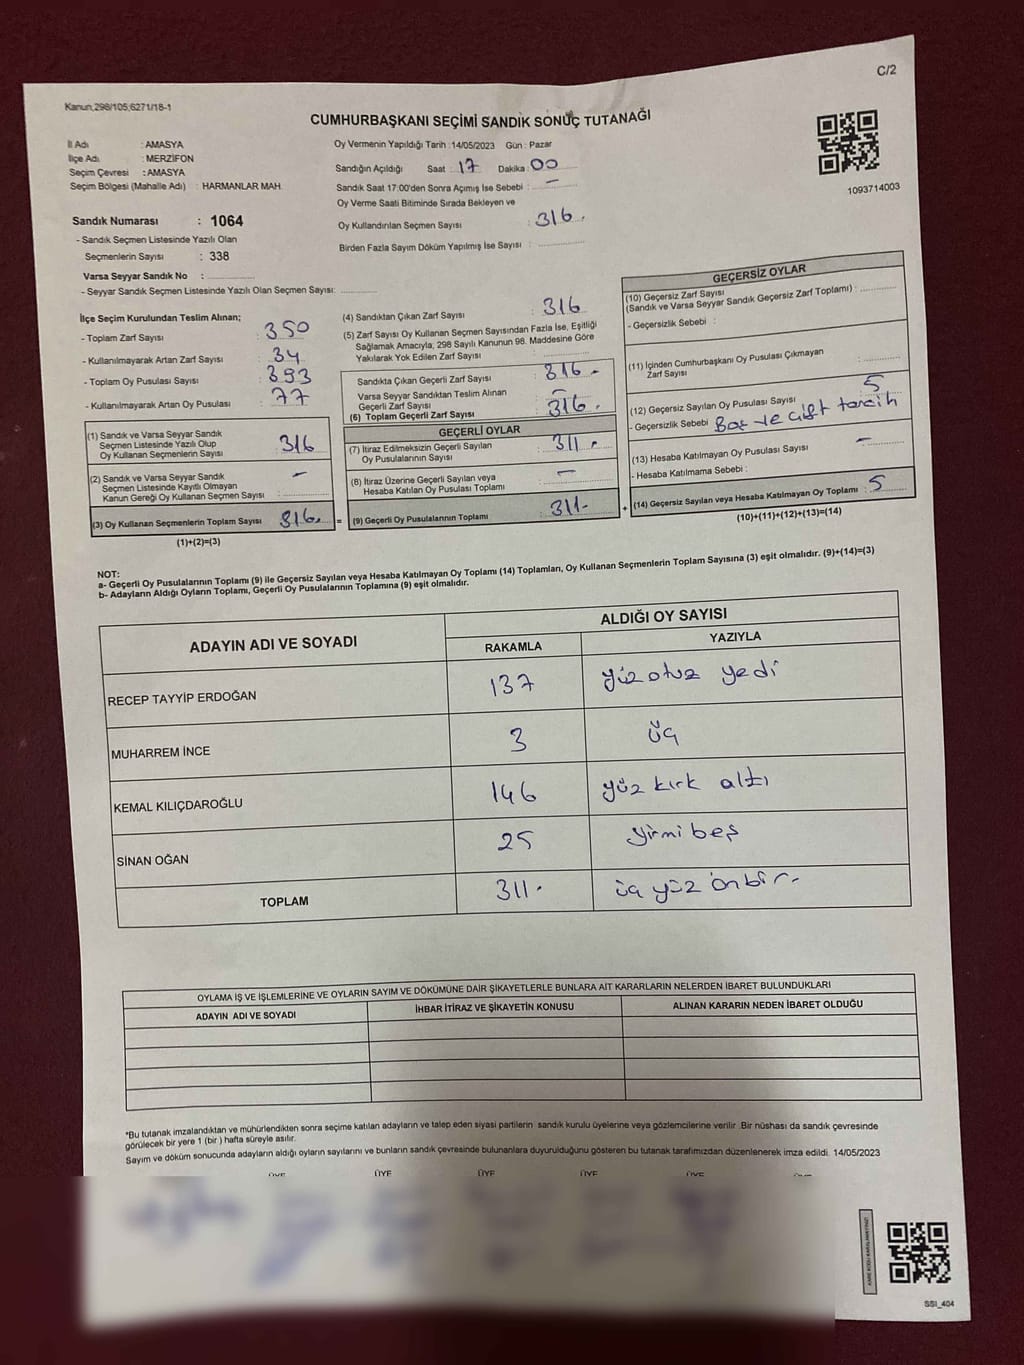 C/2
Kanun,298/105;6271/18-1
CUMHURBAŞKANI SEÇİMİ SANDIK SONUÇ TUTANAĞI
İl Adı : AMASYA
İlçe Adı : MERZİFON
Seçim Çevresi : AMASYA
Seçim Bölgesi (Mahalle Adı) : HARMANLAR MAH.
Sandık Numarası : 1064
- Sandık Seçmen Listesinde Yazılı Olan
Seçmenlerin Sayısı : 338
Varsa Seyyar Sandık No : ................
- Seyyar Sandık Seçmen Listesinde Yazılı Olan Seçmen Sayısı: ............
Oy Vermenin Yapıldığı Tarih : 14/05/2023 Gün : Pazar
Sandığın Açıldığı Saat : 17 Dakika : 00
Sandık Saat 17:00'den Sonra Açımış İse Sebebi : —
Oy Verme Saati Bitiminde Sırada Bekleyen ve
Oy Kullandırılan Seçmen Sayısı : 316.
Birden Fazla Sayım Döküm Yapılmış İse Sayısı : ................
1093714003
İlçe Seçim Kurulundan Teslim Alınan;
- Toplam Zarf Sayısı : 350
- Kullanılmayarak Artan Zarf Sayısı : 34
- Toplam Oy Pusulası Sayısı : 393
- Kullanılmayarak Artan Oy Pusulası : 77
(1) Sandık ve Varsa Seyyar Sandık
Seçmen Listesinde Yazılı Olup
Oy Kullanan Seçmenlerin Sayısı : 316
(2) Sandık ve Varsa Seyyar Sandık
Seçmen Listesinde Kayıtlı Olmayan
Kanun Gereği Oy Kullanan Seçmen Sayısı : —
(3) Oy Kullanan Seçmenlerin Toplam Sayısı 316.
(1)+(2)=(3)
=
(4) Sandıktan Çıkan Zarf Sayısı : 316
(5) Zarf Sayısı Oy Kullanan Seçmen Sayısından Fazla İse, Eşitliği
Sağlamak Amacıyla, 298 Sayılı Kanunun 98. Maddesine Göre
Yakılarak Yok Edilen Zarf Sayısı : ................
Sandıkta Çıkan Geçerli Zarf Sayısı : 316.
Varsa Seyyar Sandıktan Teslim Alınan
Geçerli Zarf Sayısı : —
(6) Toplam Geçerli Zarf Sayısı : 316.
GEÇERLİ OYLAR
(7) İtiraz Edilmeksizin Geçerli Sayılan
Oy Pusulalarının Sayısı : 311.
(8) İtiraz Üzerine Geçerli Sayılan veya
Hesaba Katılan Oy Pusulası Toplamı : —
(9) Geçerli Oy Pusulalarının Toplamı : 311.
+
GEÇERSİZ OYLAR
(10) Geçersiz Zarf Sayısı
(Sandık ve Varsa Seyyar Sandık Geçersiz Zarf Toplamı) : ............
- Geçersizlik Sebebi :
(11) İçinden Cumhurbaşkanı Oy Pusulası Çıkmayan
Zarf Sayısı : ............
(12) Geçersiz Sayılan Oy Pusulası Sayısı : 5
- Geçersizlik Sebebi : Boş ve çift tercih
(13) Hesaba Katılmayan Oy Pusulası Sayısı : —
- Hesaba Katılmama Sebebi :
(14) Geçersiz Sayılan veya Hesaba Katılmayan Oy Toplamı : 5
(10)+(11)+(12)+(13)=(14)
NOT:
a- Geçerli Oy Pusulalarının Toplamı (9) ile Geçersiz Sayılan veya Hesaba Katılmayan Oy Toplamı (14) Toplamları, Oy Kullanan Seçmenlerin Toplam Sayısına (3) eşit olmalıdır. (9)+(14)=(3)
b- Adayların Aldığı Oyların Toplamı, Geçerli Oy Pusulalarının Toplamına (9) eşit olmalıdır.
ADAYIN ADI VE SOYADI ALDIĞI OY SAYISI
RAKAMLA YAZIYLA
RECEP TAYYİP ERDOĞAN 137 yüz otuz yedi
MUHARREM İNCE 3 üç
KEMAL KILIÇDAROĞLU 146 yüz kırk altı
SİNAN OĞAN 25 yirmi beş
TOPLAM 311. üç yüz onbir.
OYLAMA İŞ VE İŞLEMLERİNE VE OYLARIN SAYIM VE DÖKÜMÜNE DAİR ŞİKAYETLERLE BUNLARA AİT KARARLARIN NELERDEN İBARET BULUNDUKLARI
ADAYIN ADI VE SOYADI İHBAR İTİRAZ VE ŞİKAYETİN KONUSU ALINAN KARARIN NEDEN İBARET OLDUĞU
*Bu tutanak imzalandıktan ve mühürlendikten sonra seçime katılan adayların ve talep eden siyasi partilerin sandık kurulu üyelerine veya gözlemcilerine verilir .Bir nüshası da sandık çevresinde
görülecek bir yere 1 (bir ) hafta süreyle asılır.
Sayım ve döküm sonucunda adayların aldığı oyların sayılarını ve bunların sandık çevresinde bulunanlara duyurulduğunu gösteren bu tutanak tarafımızdan düzenlenerek imza edildi. 14/05/2023
ÜYE ÜYE ÜYE ÜYE ÜYE
SSI_404